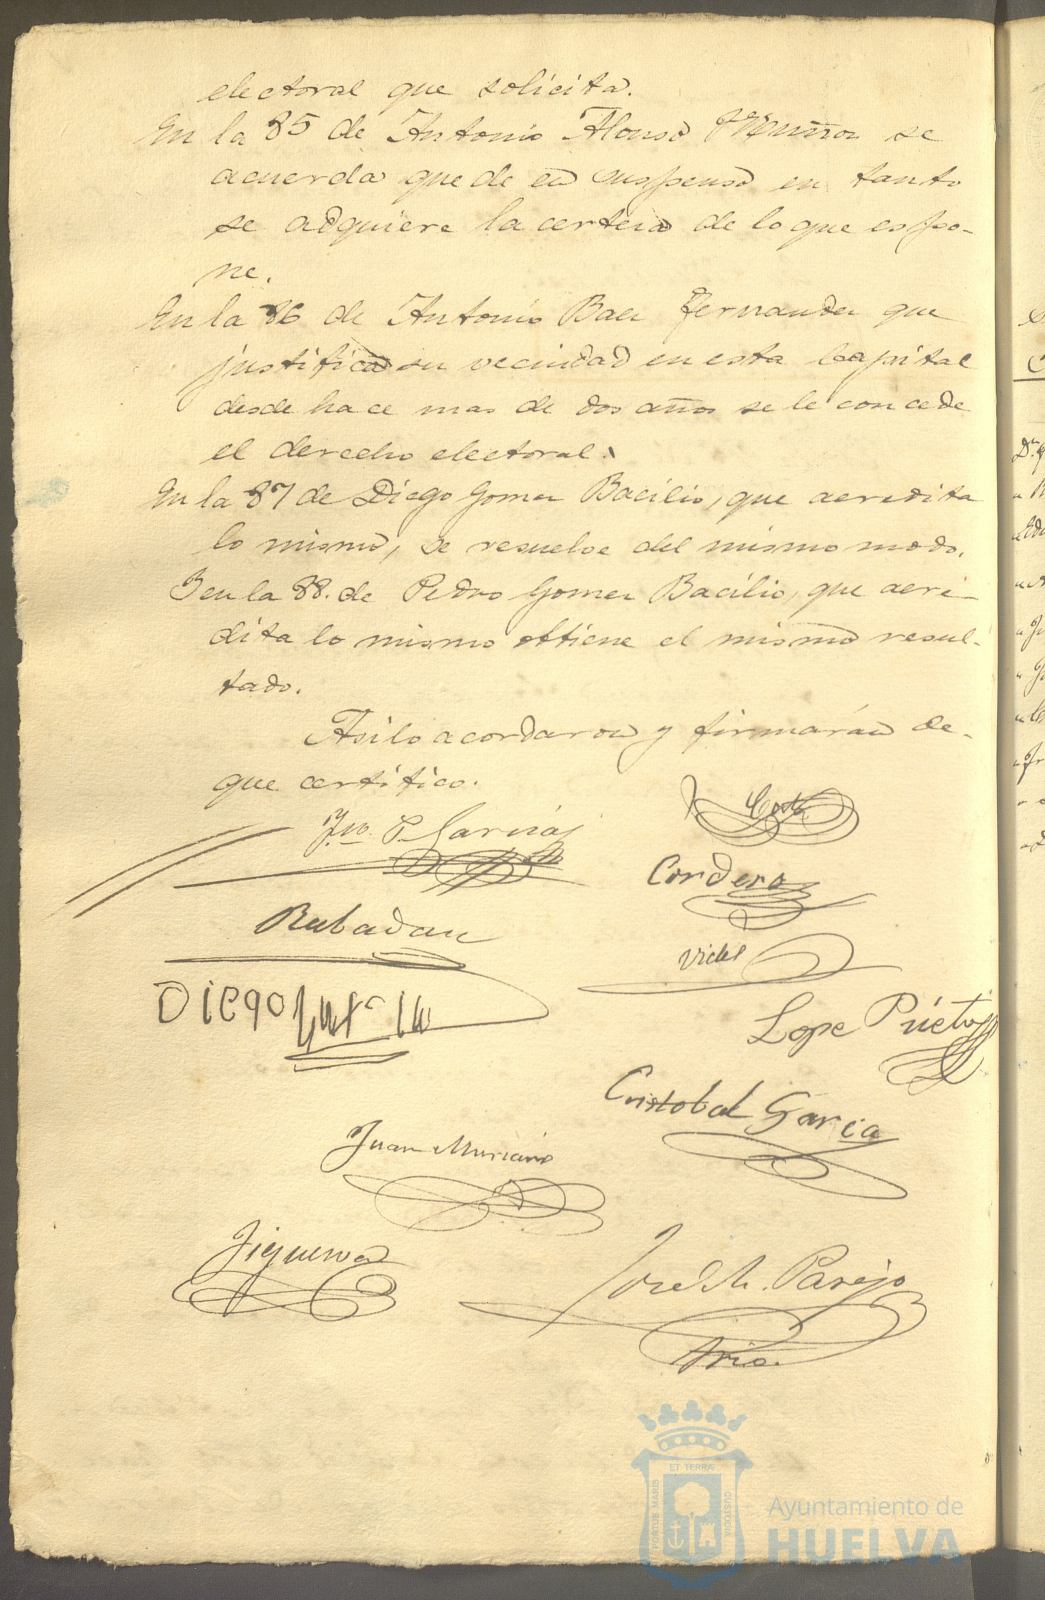 electoral que solicita.
En la 85 de Antonio Alonso Muñoz se
acuerda quede en suspenso en tanto
se adquiere la certeza de lo que espo-
ne.
En la 86 de Antonio Baez Fernandez que
justifica su vecindad en esta Capital
desde hace mas de dos años se le concede
el derecho electoral.
En la 87 de Diego Gomez Bacilio, que acredita
lo mismo, se resuelve del mismo modo.
Y en la 88. de Pedro Gomez Bacilio, que acre-
dita lo mismo obtiene el mismo resul-
tado.
Asi lo acordaron y firmarán de-
que certifico.
Jno. P. Garcia
Cordero
Rabadan
Vides
DIEGO
Lope Prieto
Cristobal Garcia
Juan Muriano
Figueroa
José M. Parejo
Srio.
PORTUS MARIS ET TERRAE CUSTODIA
Ayuntamiento de
HUELVA